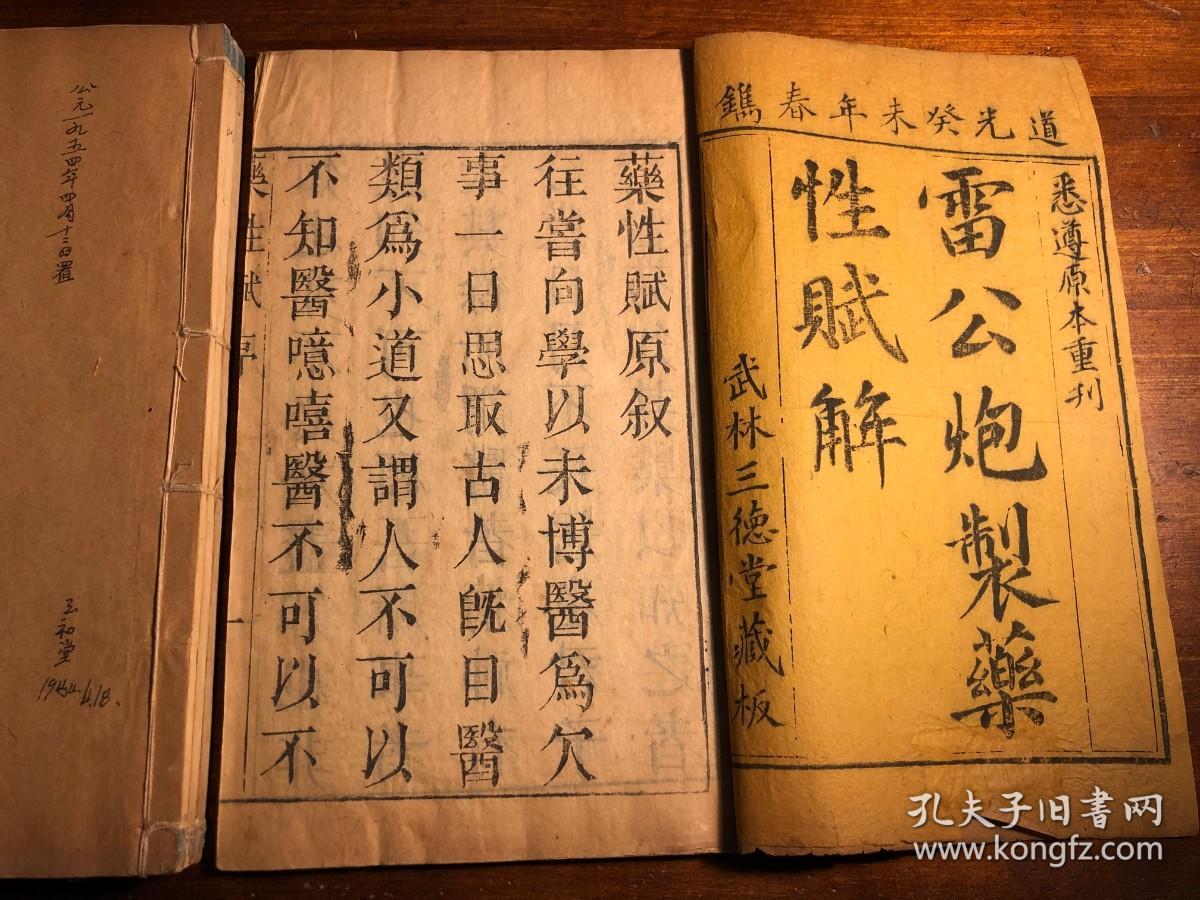 道光癸未年春鐫
悉遵原本重刊
雷公炮製藥
性賦解
武林三德堂藏板
藥性賦原叙
往嘗向學以未博醫爲欠
事一日思取古人旣目醫
類爲小道又謂人不可以
不知醫噫嘻醫不可以不
藥性賦序
一
公元一九五四年四月十三日置
三和堂
孔夫子旧书网
www.kongfz.com